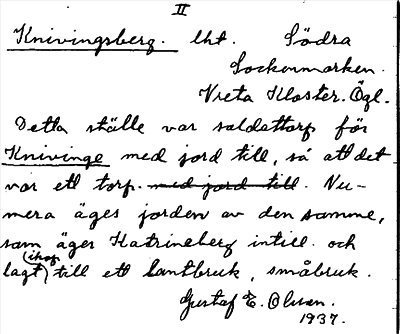 II
Knivingsberg. lht. Södra
Sockenmarken.
Vreta Kloster. Ögl.
Detta ställe var soldattorp för
Knivinge med jord till, så att det
var ett torp. med jord till. Nu-
mera äges jorden av den samme,
som äger Katrineberg intill. och
(ihop
lagt) till ett lantbruk, småbruk.
Gustaf E. Olsson.
1937.